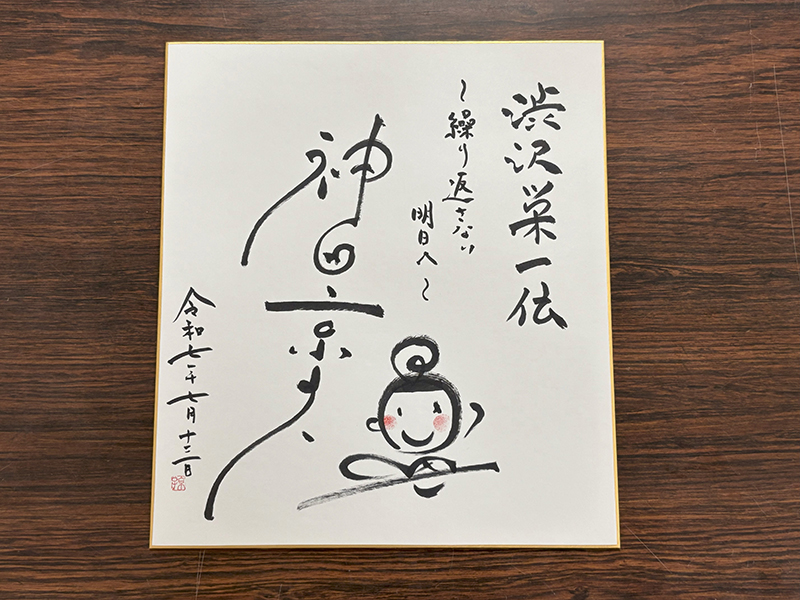 渋沢栄一伝
〜繰り返さない
明日へ〜
神田京子
令和七年七月十三日